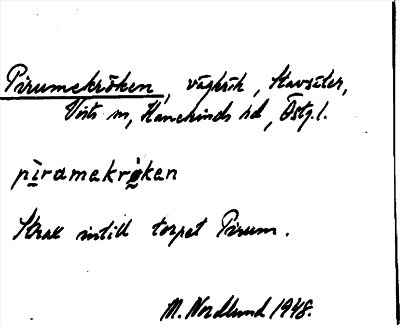 Pirumekröken, vägkrök, Stavsäter,
Vists sn, Hanekinds hd, Östg.l.
pìramakrø̀kan
Strax intill torpet Pirum.
M. Nordlund 1948.